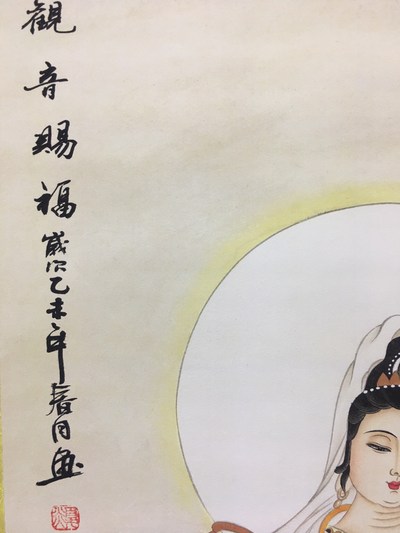 觀音賜福歲次乙未年春月画